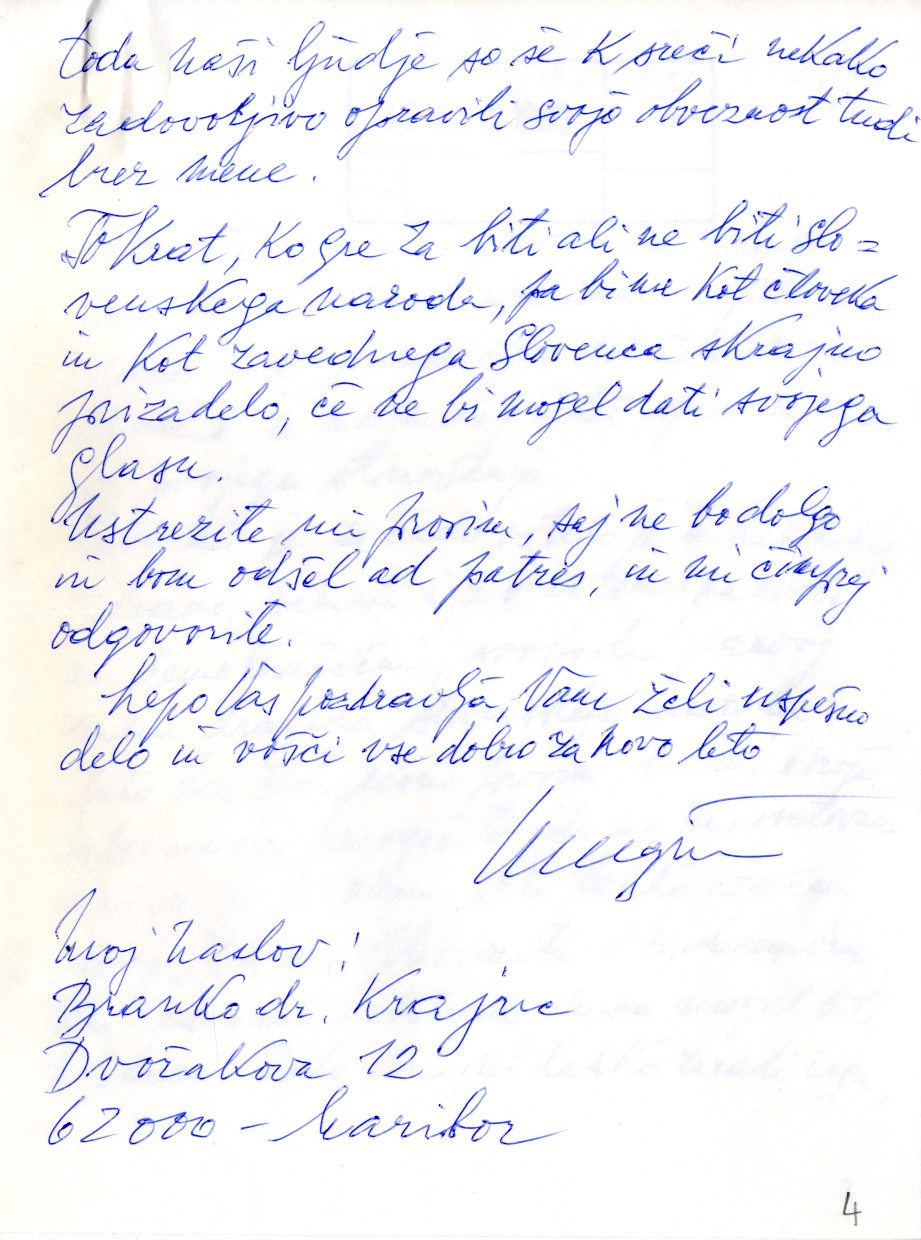 toda naši ljudje so še k sreči nekako
zadovoljivo opravili svojo obveznost tudi
brez mene.
Tokrat, ko gre za biti ali ne biti slo=
venskega naroda, pa bi me kot človeka
in kot zavednega Slovenca skrajno
prizadelo, če ne bi mogel dati svojega
glasu.
Ustrezite mi prosim, saj ne bo dolgo
in bom odšel ad patres, in mi čimprej
odgovorite.
Lepo Vas pozdravlja, Vam želi uspešno
delo in vošči vse dobro za novo leto
Moj naslov:
Branko dr. Krajnc
Dvořakova 12
62000 - Maribor
4